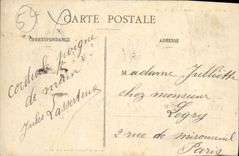 54
CARTE POSTALE
CORRESPONDANCE
ADRESSE
cordiale poigne
de main
Jules Lasserteux
Madame Julliette
chez monsieur
Legry
2 rue de miromenil
Paris